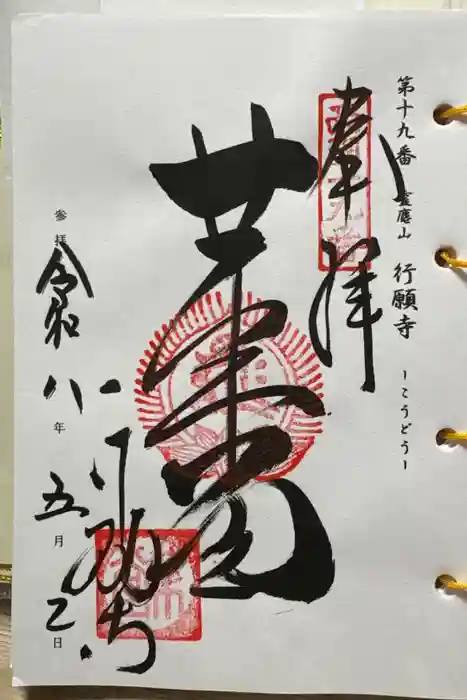 第十九番 霊麀山 行願寺 ーこうどうー
奉拝
革堂
行願寺
参拝 令和八年五月 日